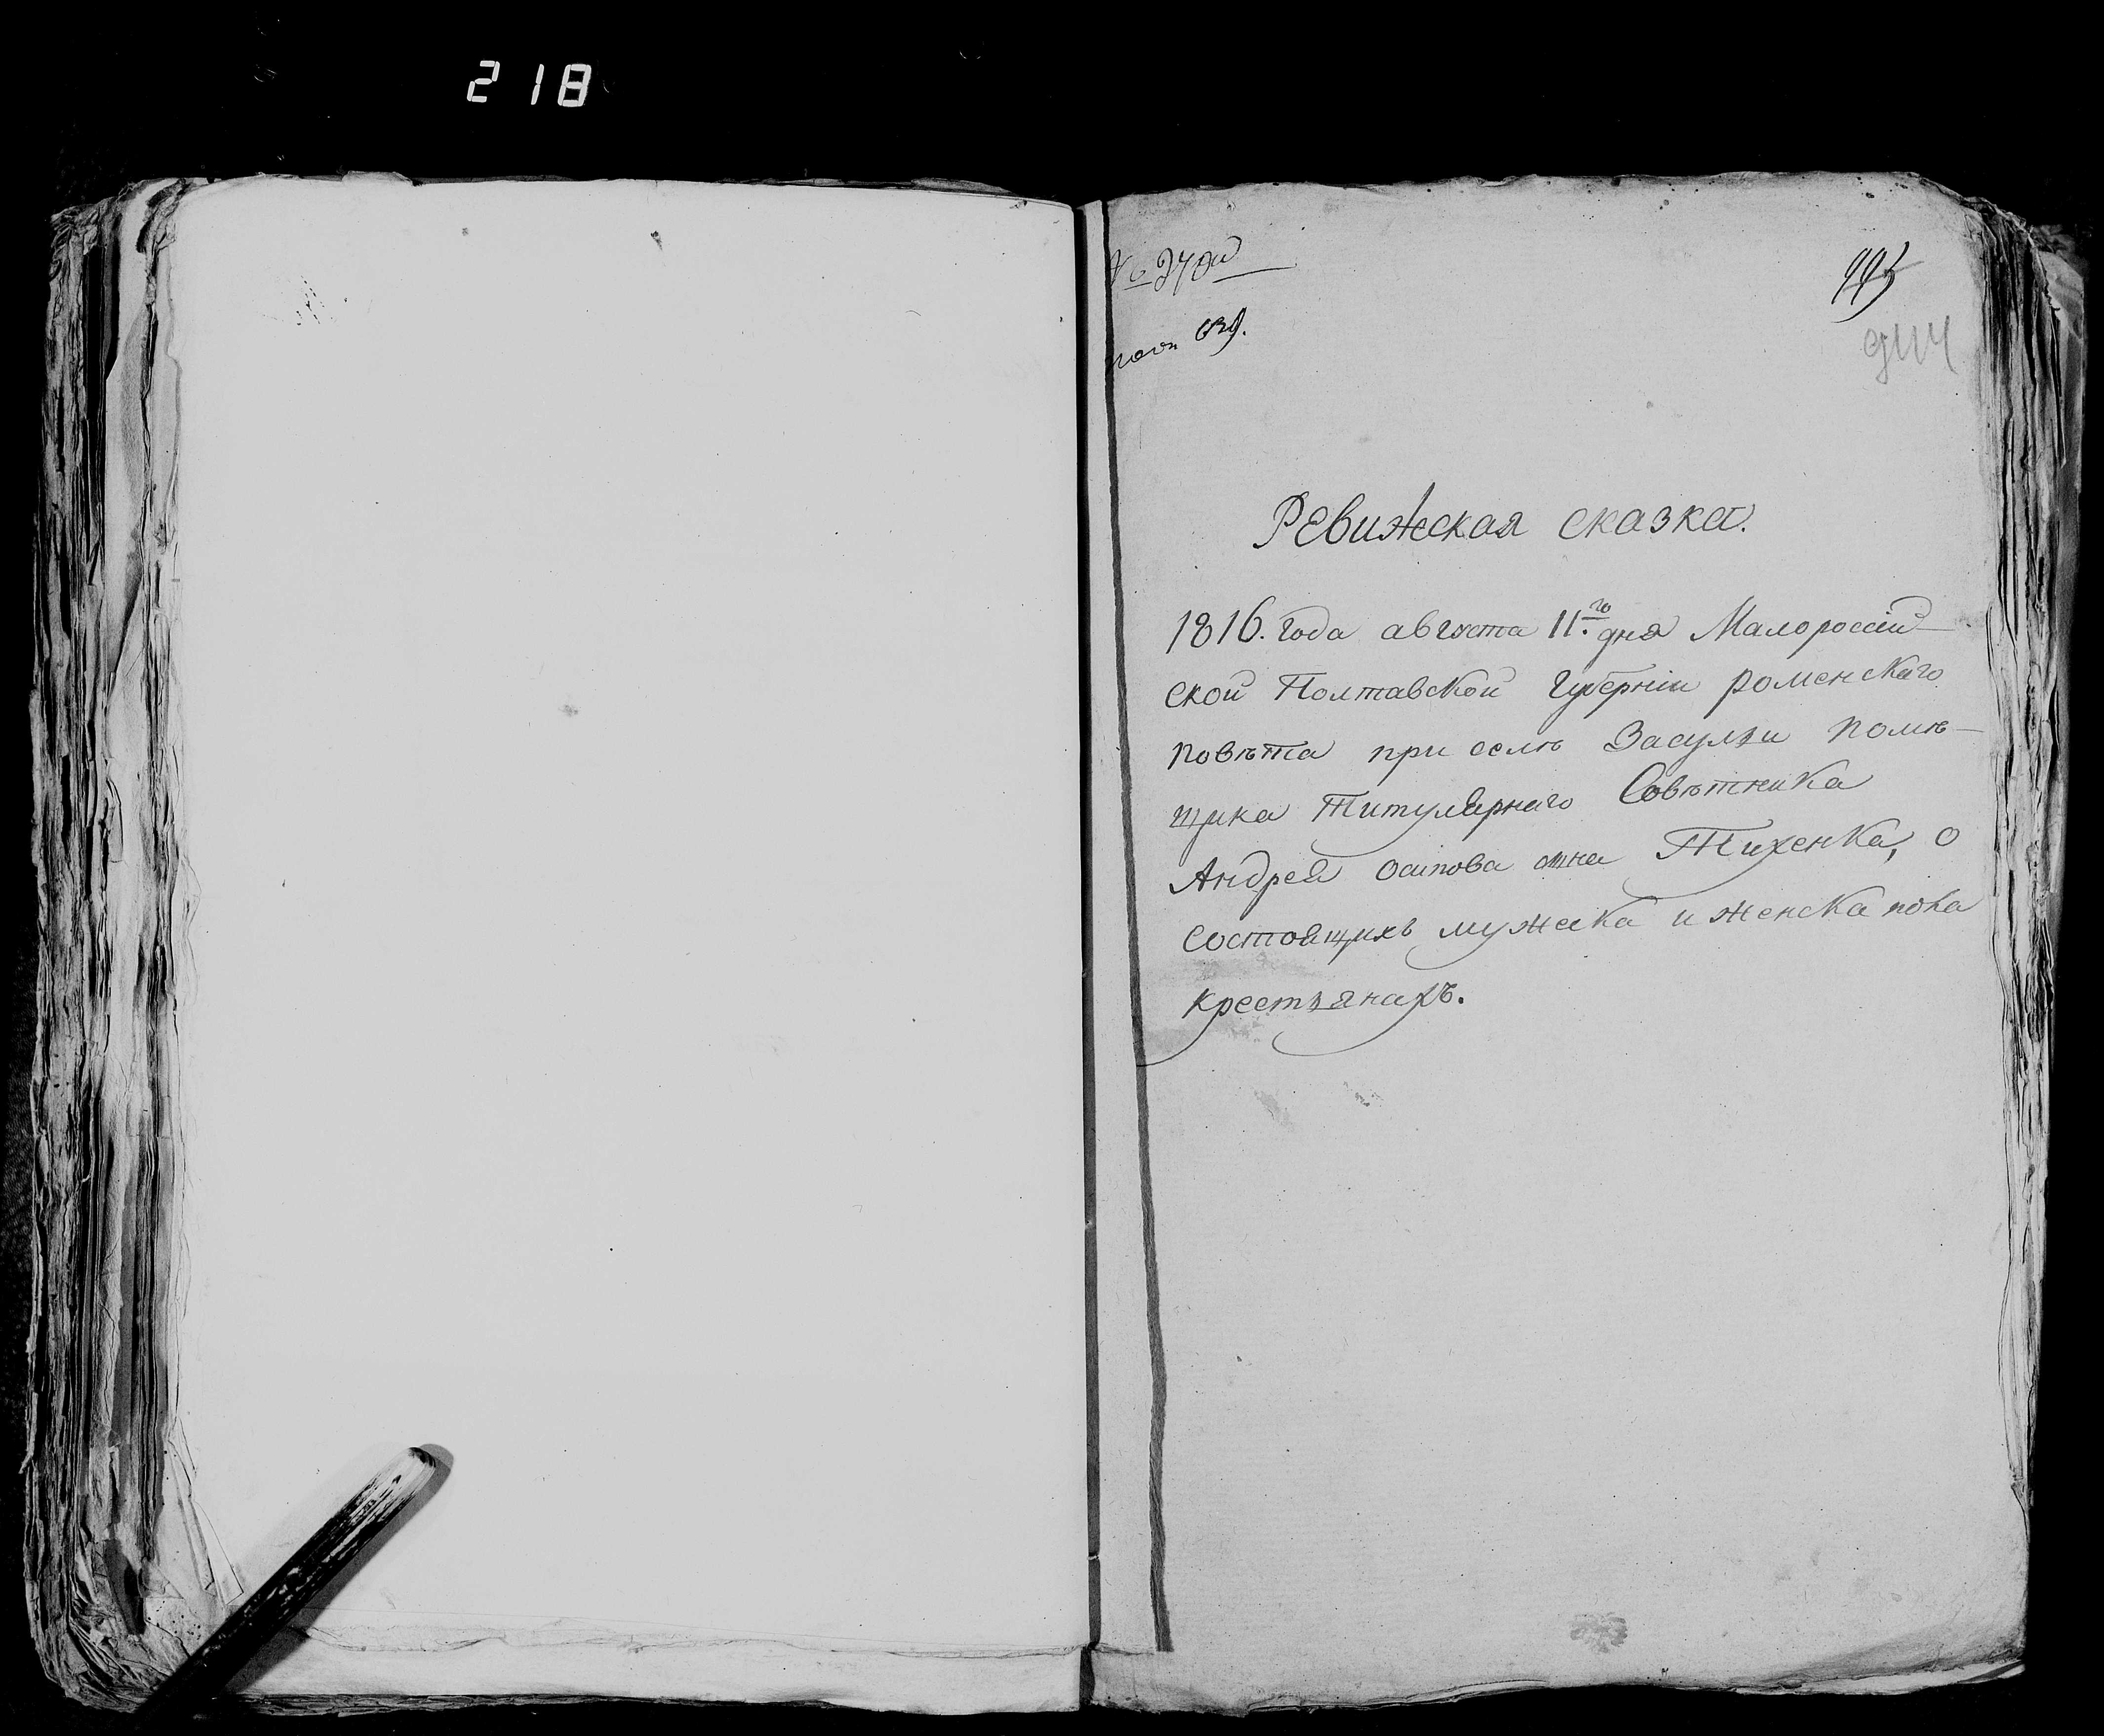 218
№ 270й
639.
Ревижская сказка.
1816. года августа 11.го дня Малороссій–
ской Полтавской Губерніи роменскаго
повѣта при селѣ Засульи помѣ–
щика Титулярнаго Совѣтника
Андрея Осипова сына Тихенка, о
состоящихъ мужска и женска пола
крестьянахъ.